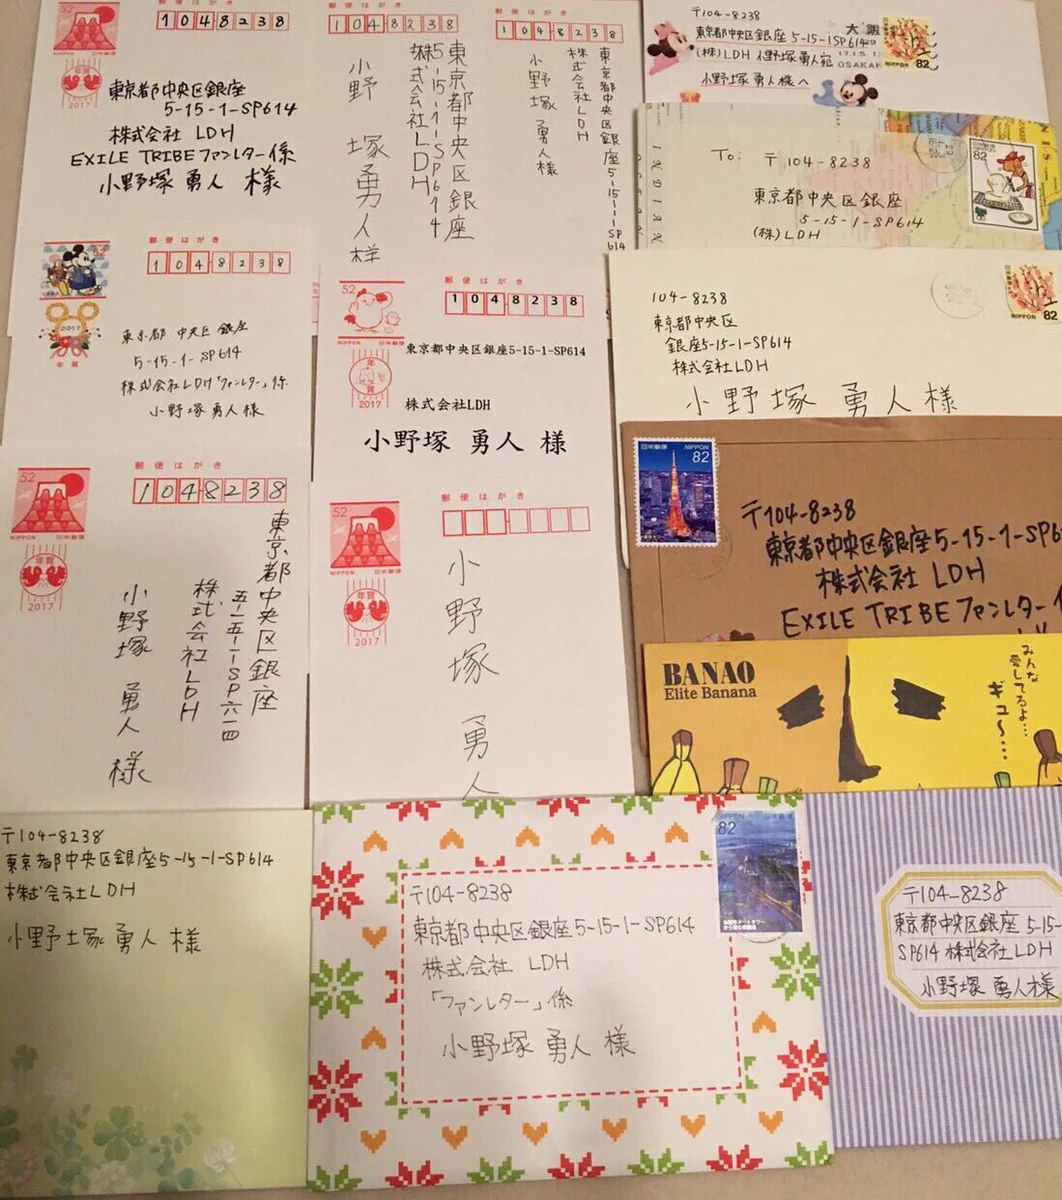 52
NIPPON 日本郵便
年賀
2017
郵便はがき
1048238
東京都中央区銀座
5-15-1-SP614
株式会社 LDH
EXILE TRIBE ファンレター係
小野塚 勇人 様
郵便はがき
1048238
東京都中央区銀座
5-15-1-SP614
株式会社LDH
小野 塚 勇人 様
郵便はがき
1048238
東京都中央区銀座5-15-1-SP614
株式会社LDH
小野塚 勇人様
〒104-8238
東京都中央区銀座 5-15-1-SP614
(株)LDH 小野塚勇人宛
小野塚 勇人様へ
大阪
17.1.5.1
OSAKAK
NIPPON 82
INDIAN
To:
〒104-8238
東京都中央区銀座
5-15-1-SP614
(株)LDH
82
郵便はがき
1048238
2017
年賀
東京都 中央区 銀座
5-15-1-SP614
株式会社LDH「ファンレター」係
小野塚 勇人 様
52
NIPPON
年賀
2017
郵便はがき
1048238
東京都中央区銀座5-15-1-SP614
株式会社LDH
小野塚 勇人 様
104-8238
東京都中央区
銀座5-15-1-SP614
株式会社LDH
小野塚 勇人様
NIPPON 82
52
NIPPON 日本郵便
年賀
2017
郵便はがき
1048238
東京都中央区銀座
五-一五-一-SP六一四
株式会社LDH
小野塚 勇人 様
52
NIPPON 日本郵便
年賀
2017
郵便はがき
小野塚 勇人
日本郵便 NIPPON
82
〒104-8238
東京都中央区銀座5-15-1-SP6
株式会社 LDH
EXILE TRIBE ファンレター
BANAO
Elite Banana
みんな
愛してるよ…
ギュ〜…
〒104-8238
東京都中央区銀座5-15-1-SP614
株式会社LDH
小野塚 勇人 様
NIPPON 日本郵便
82
〒104-8238
東京都中央区銀座5-15-1-SP614
株式会社 LDH
「ファンレター」係
小野塚 勇人 様
〒104-8238
東京都中央区銀座 5-15-
SP614 株式会社 LDH
小野塚 勇人様